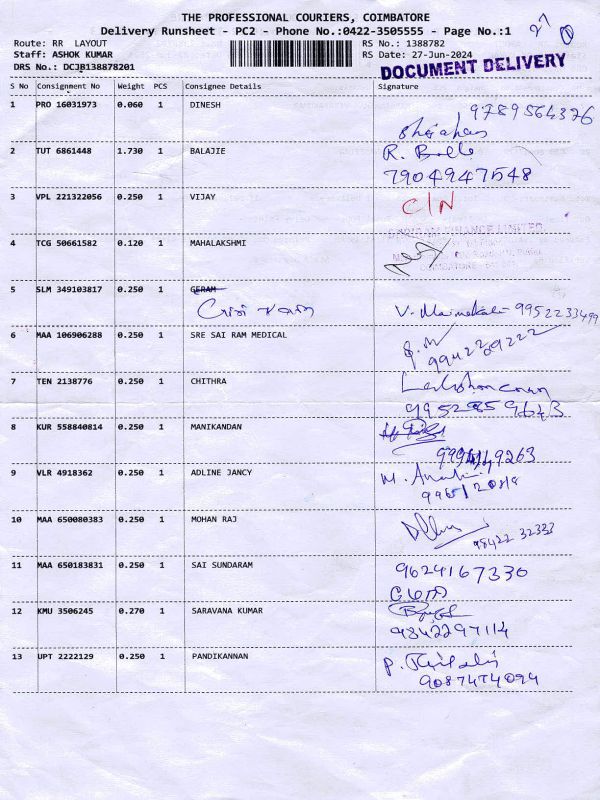 THE PROFESSIONAL COURIERS, COIMBATORE
Delivery Runsheet - PC2 - Phone No.:0422-3505555 - Page No.:1
27 1
Route: RR LAYOUT
RS No.: 1388782
Staff: ASHOK KUMAR
RS Date: 27-Jun-2024
DRS No.: DCJB138878201
DOCUMENT DELIVERY
S No Consignment No Weight PCS Consignee Details Signature
1 PRO 16031973 0.060 1 DINESH 9789564376
2 TUT 6861448 1.730 1 BALAJIE R.
7904947548
3 VPL 221322056 0.250 1 VIJAY C/N
4 TCG 50661582 0.120 1 MAHALAKSHMI
5 SLM 349103817 0.250 1 GERAM V. 9952233499
6 MAA 106906288 0.250 1 SRE SAI RAM MEDICAL
9942229222
7 TEN 2138776 0.250 1 CHITHRA
8 KUR 558840814 0.250 1 MANIKANDAN
9 VLR 4918362 0.250 1 ADLINE JANCY M.
10 MAA 650080383 0.250 1 MOHAN RAJ
98422 32333
11 MAA 650183831 0.250 1 SAI SUNDARAM 9624167330
12 KMU 3506245 0.270 1 SARAVANA KUMAR
9842297114
13 UPT 2222129 0.250 1 PANDIKANNAN P.
9087474094